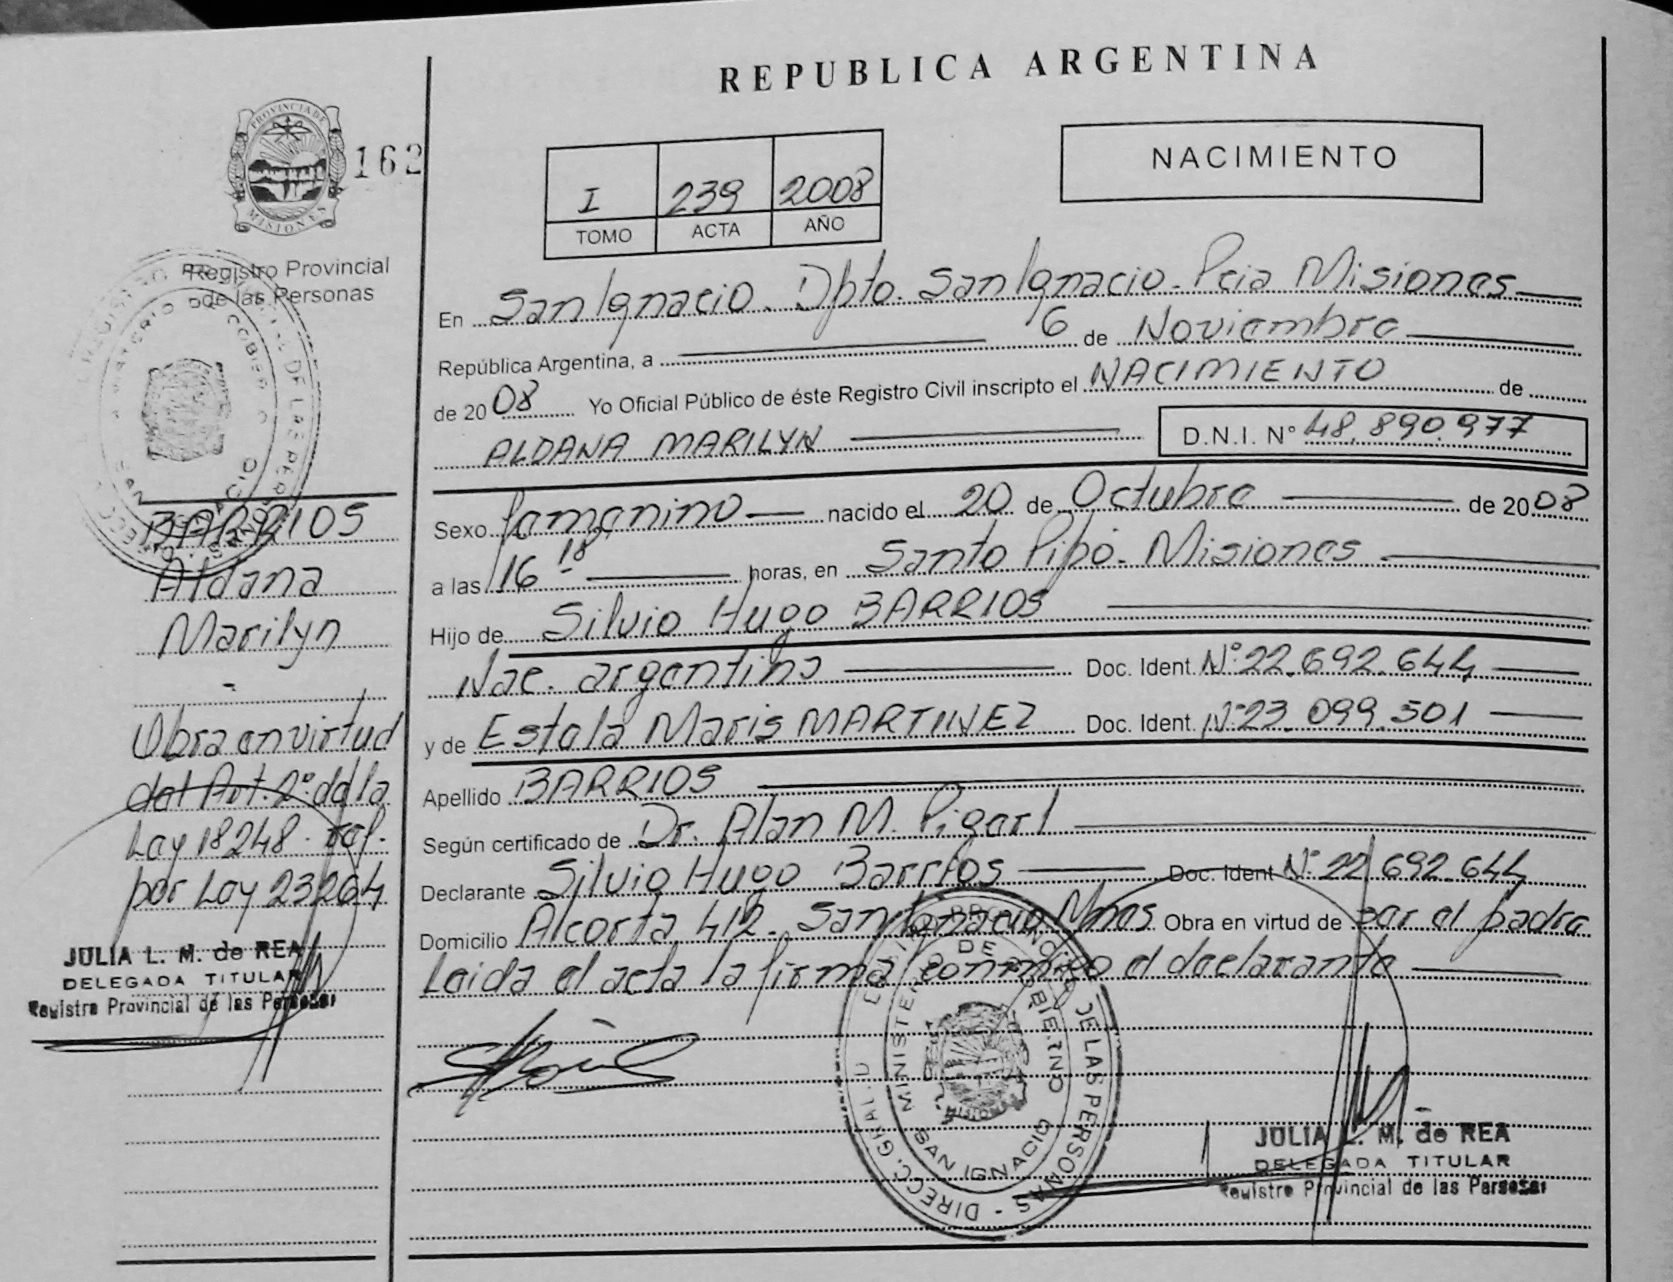 REPUBLICA ARGENTINA
PROVINCIA DE
MISIONES
162
Registro Provincial
de las Personas
I 239 2008
TOMO ACTA AÑO
NACIMIENTO
En San Ignacio. Dpto. San Ignacio. Pcia Misiones
República Argentina, a 6 de Noviembre
de 2008 Yo Oficial Público de éste Registro Civil inscripto el NACIMIENTO de
ALDANA MARILYN D.N.I. N° 48.890.977
Sexo femenino nacido el 20 de Octubre de 2008
a las 16 18 horas, en Santo Pipó. Misiones
Hijo de Silvio Hugo BARRIOS
Nac. argentino Doc. Ident. N° 22.692.644
y de Estela Maris MARTINEZ Doc. Ident. N° 23.099.501
Apellido BARRIOS
Según certificado de Dr. Alan M.
Declarante Silvio Hugo Barrios Doc. Ident N° 22.692.644
Domicilio Alcorta 412. San Ignacio Mnes Obra en virtud de ser el padre
Leida el acta la firma conmigo el declarante
BARRIOS
Aldana
Marilyn
Obra en virtud
del Art. 2° de la
Ley 18248.
por Ley 23264
JULIA L. M. de REA
DELEGADA TITULAR
Registro Provincial de las Personas
DE LAS PERSONAS - DIRECC. GRAL.
MINISTERIO DE GOBIERNO
SAN IGNACIO
JULIA L. M. de REA
DELEGADA TITULAR
Registro Provincial de las Personas